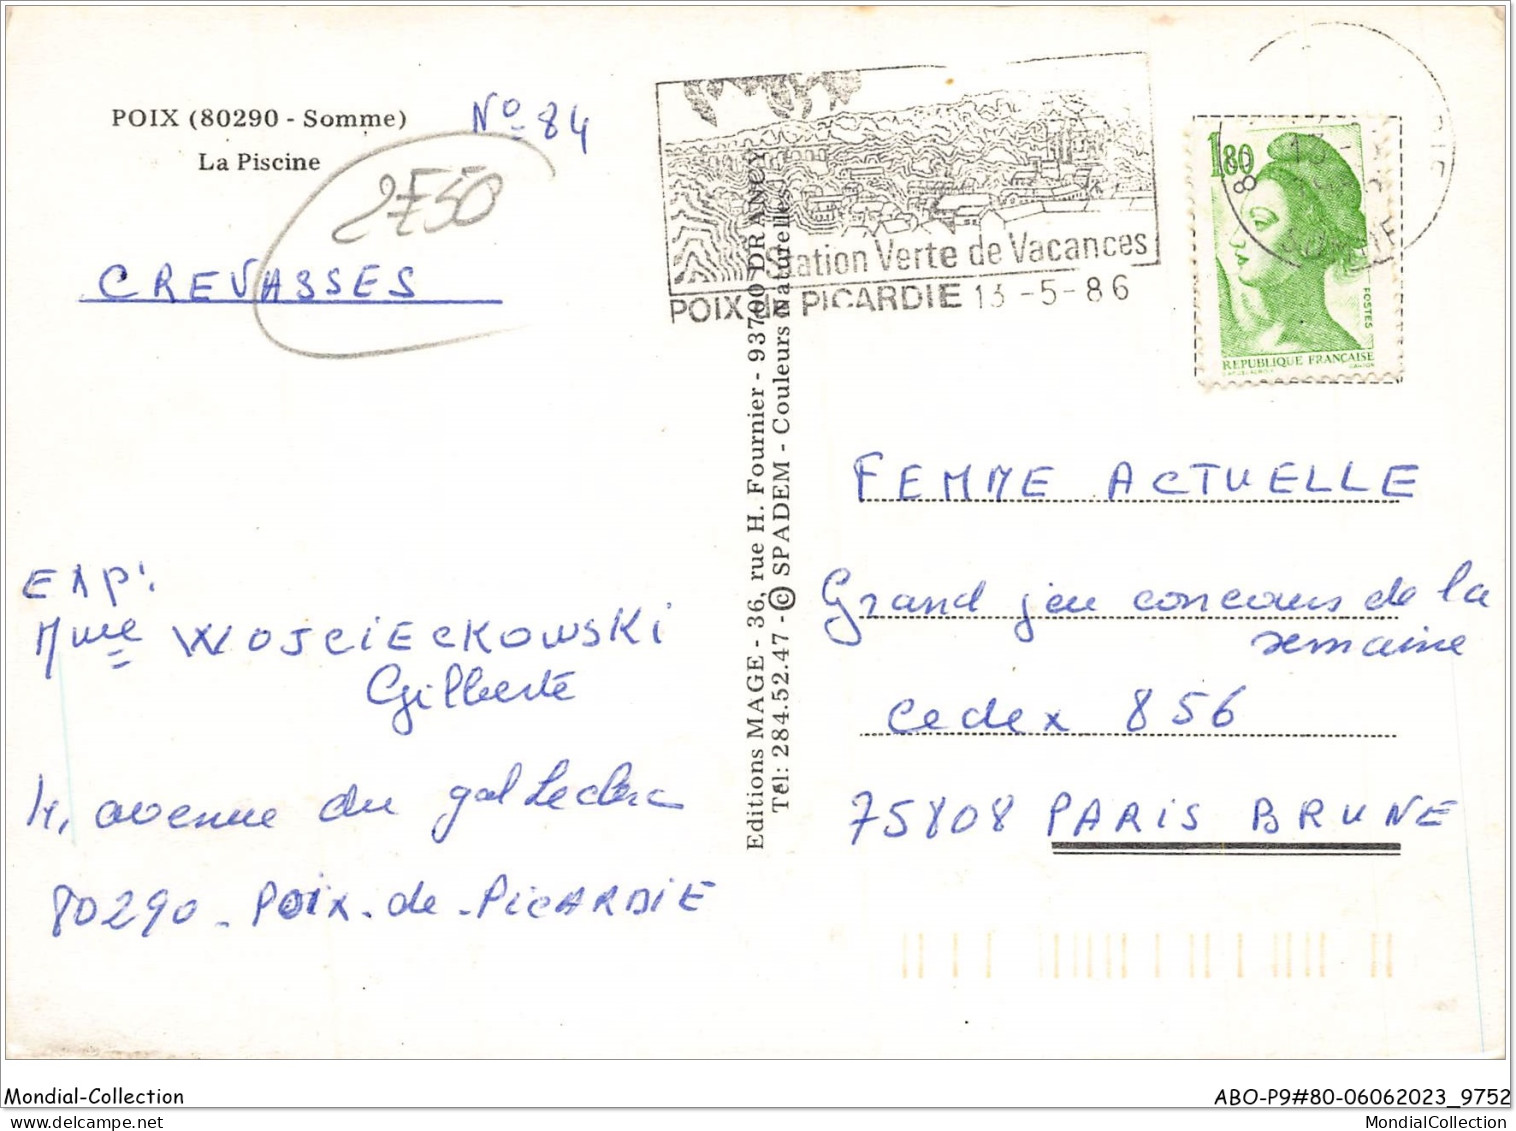 POIX (80290 - Somme)
La Piscine
N° 84
2F50
CREVASSES
EXP:
Mme WOJCIECKOWSKI
Gilberte
4, avenue du gal Leclerc
80290 - POIX - de - PICARDIE
Editions MAGE - 36, rue H. Fournier - 93700 DRANCY
Tél: 284.52.47 - © SPADEM - Couleurs Naturelles
Station Verte de Vacances
POIX de PICARDIE 13 -5-86
1,80
POSTES
REPUBLIQUE FRANÇAISE
SOMME
FEMME ACTUELLE
Grand jeu concours de la
semaine
Cedex 856
75808 PARIS BRUNE
Mondial-Collection
ABO-P9#80-06062023_9752
MondialCollection